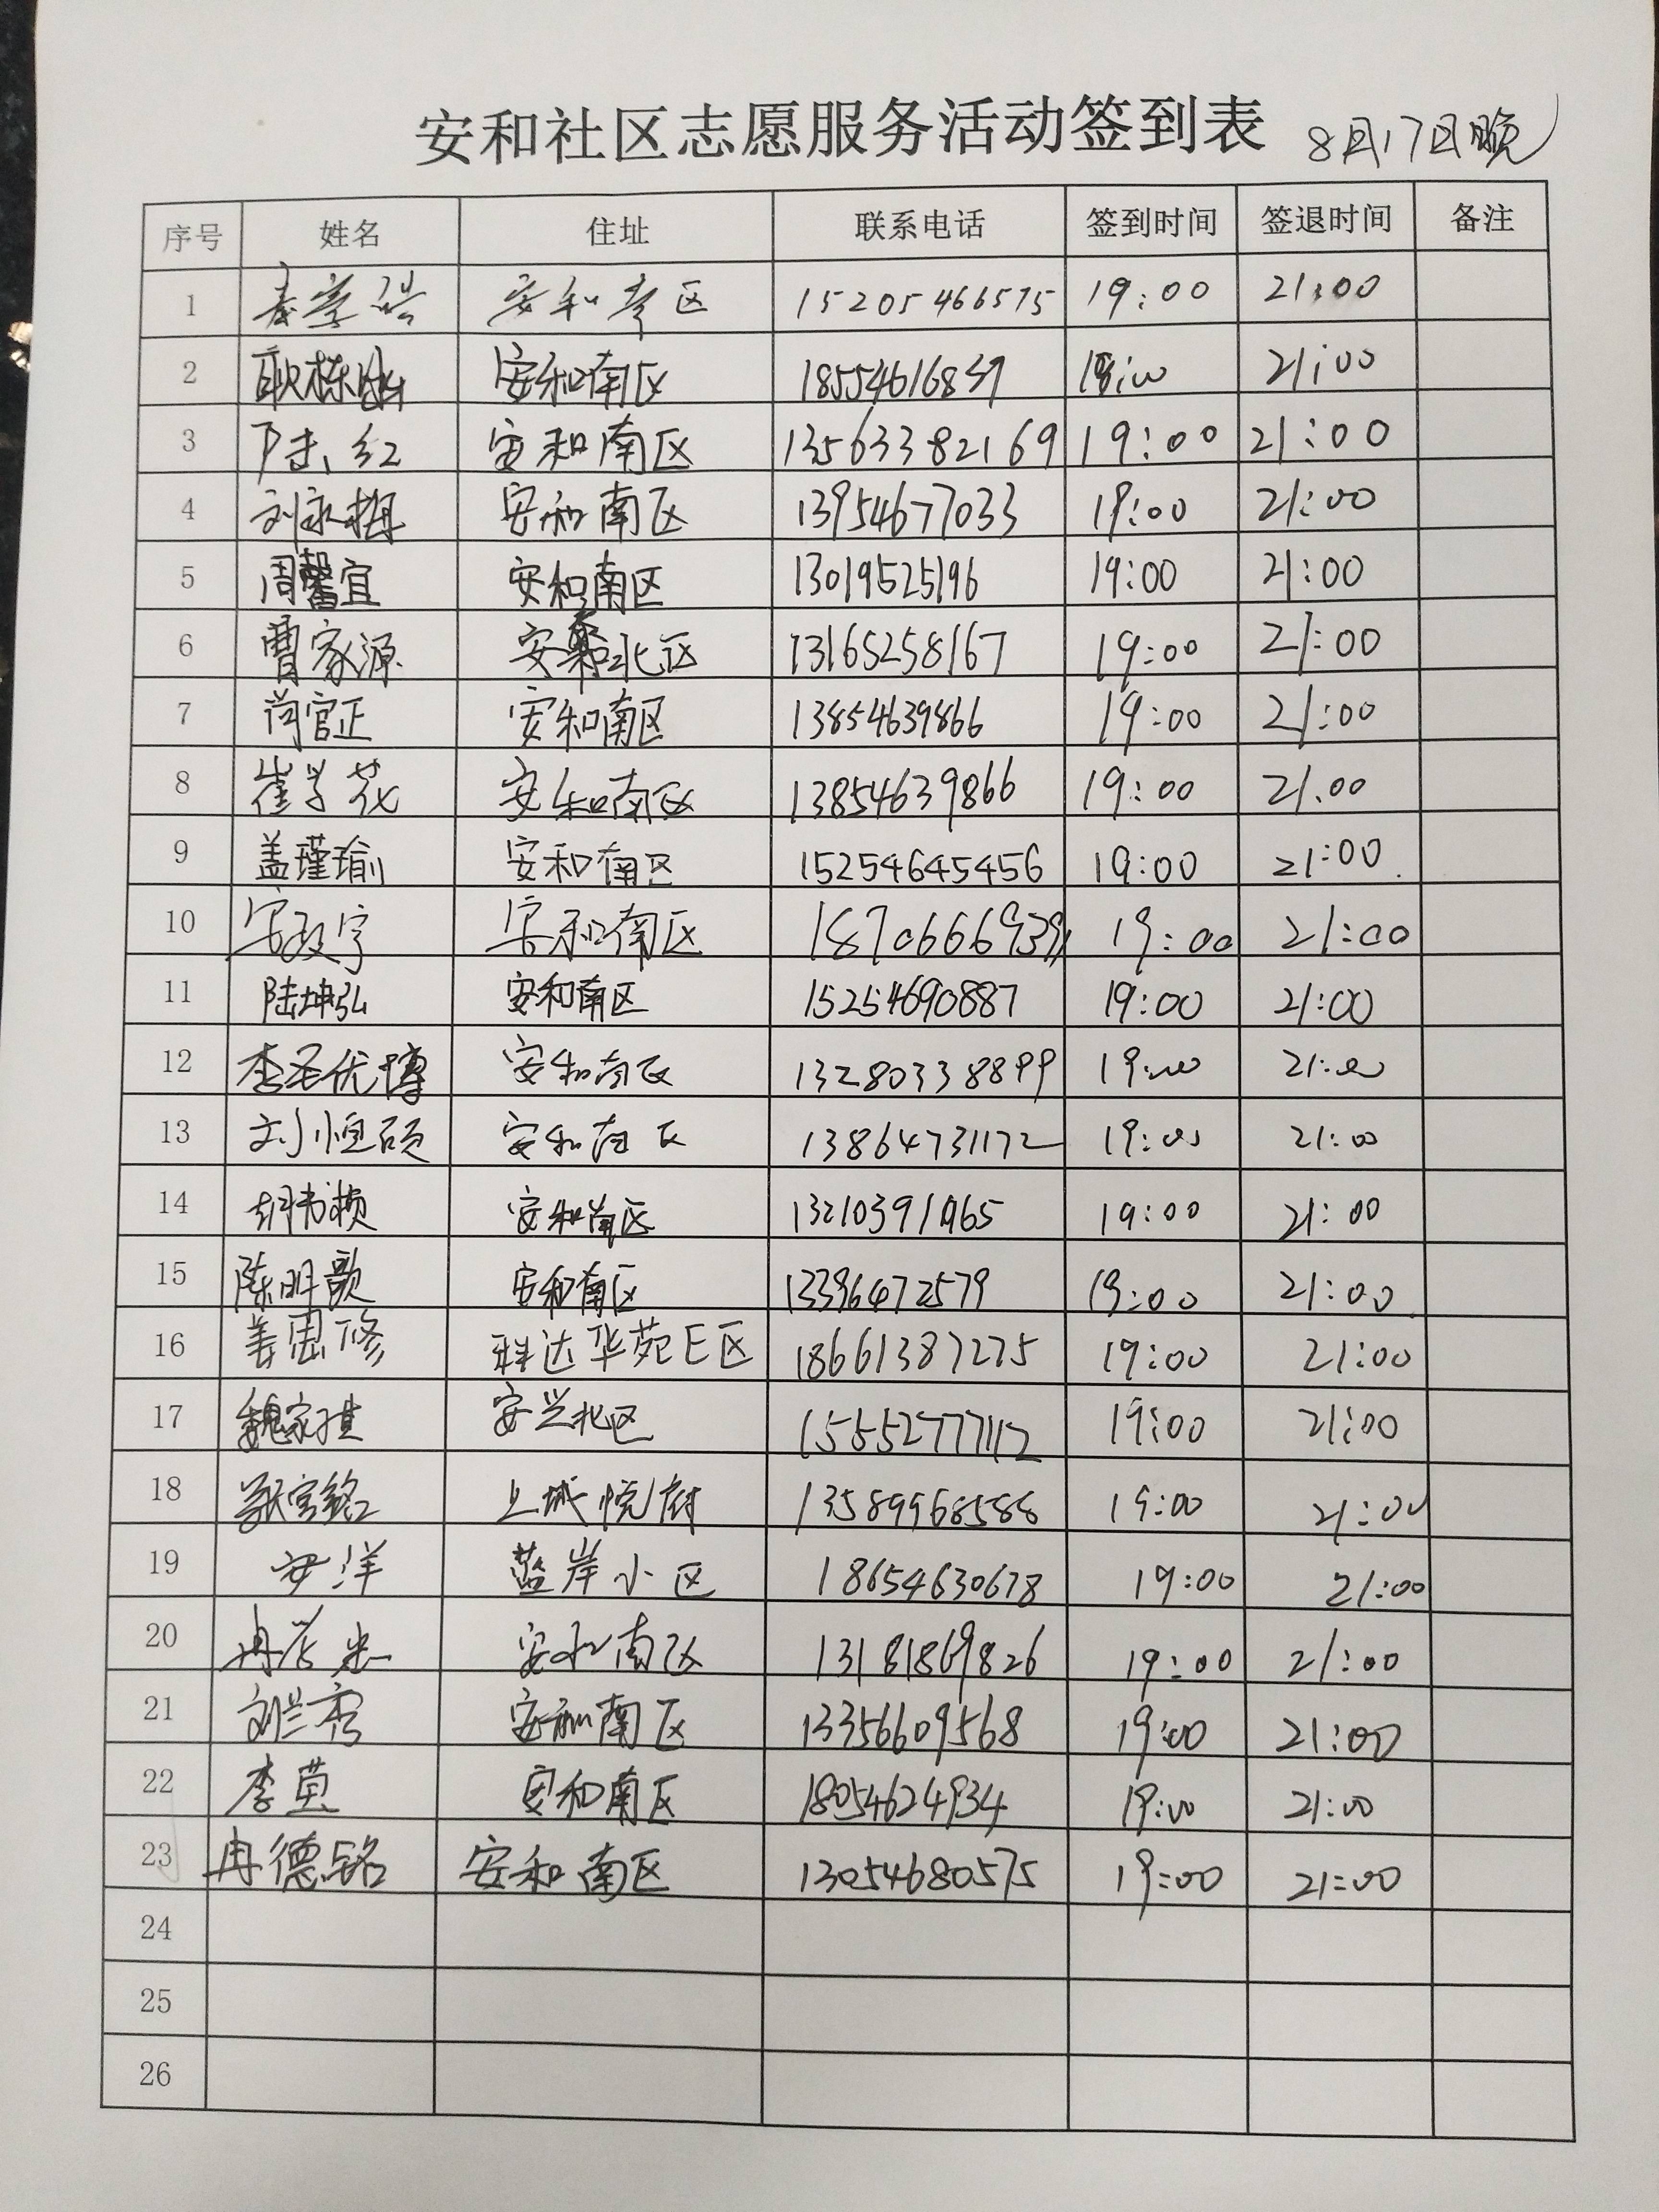 安和社区志愿服务活动签到表 8月17日晚
序号 姓名 住址 联系电话 签到时间 签退时间 备注
1 安和南区 15205466575 19:00 21:00
2 安和南区 18554616837 19:00 21:00
3 陆红 安和南区 13563382169 19:00 21:00
4 刘永梅 安和南区 13954677033 19:00 21:00
5 周馨宜 安和南区 13019525196 19:00 21:00
6 曹家源 北区 13165258167 19:00 21:00
7 尚官正 安和南区 13854639866 19:00 21:00
8 崔学花 安和南区 13854639866 19:00 21:00
9 盖瑾瑜 安和南区 15254645456 19:00 21:00
10 安和南区 19:00 21:00
11 陆坤弘 安和南区 15254690887 19:00 21:00
12 安和南区 13280338899 19:00 21:00
13 刘恒硕 安和南区 13864731172 19:00 21:00
14 安和南区 19:00 21:00
15 陈明歌 安和南区 13396472579 19:00 21:00
16 姜思修 科达华苑E区 18661387275 19:00 21:00
17 安兴北区 15552777112 19:00 21:00
18 上城悦府 13589968588 19:00 21:00
19 安洋 蓝岸小区 18654630678 19:00 21:00
20 安和南区 13181869826 19:00 21:00
21 刘兰秀 安和南区 13356609568 19:00 21:00
22 李茧 安和南区 18054624934 19:00 21:00
23 冉德铭 安和南区 13054680575 19:00 21:00
24
25
26